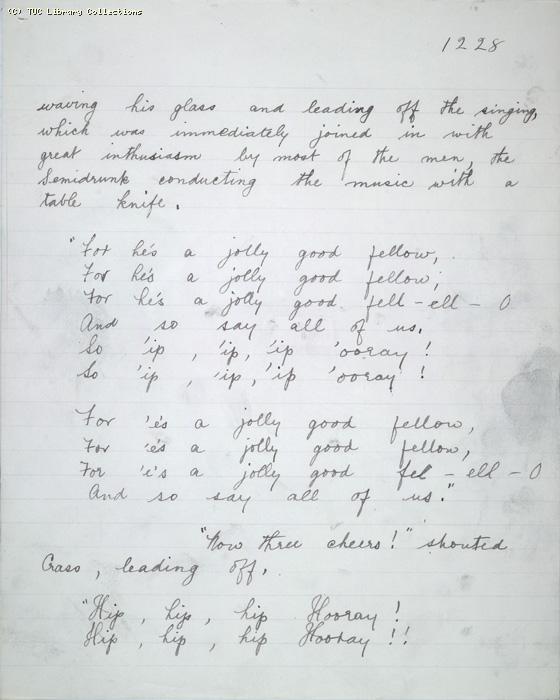 (C) TUC Library Collections
1228
waving his glass and leading off the singing,
which was immediately joined in with
great inthusiasm by most of the men, the
Semidrunk conducting the music with a
table knife.
"For he's a jolly good fellow,
For he's a jolly good fellow,
For he's a jolly good fell-ell-O
And so say all of us.
So 'ip, 'ip, 'ip 'ooray!
So 'ip, 'ip, 'ip 'ooray!
For 'e's a jolly good fellow,
For 'e's a jolly good fellow,
For 'e's a jolly good fel-ell-O
And so say all of us."
"Now three cheers!" shouted
Crass, leading off.
"Hip, hip, hip Hooray!
Hip, hip, hip Hooray!!